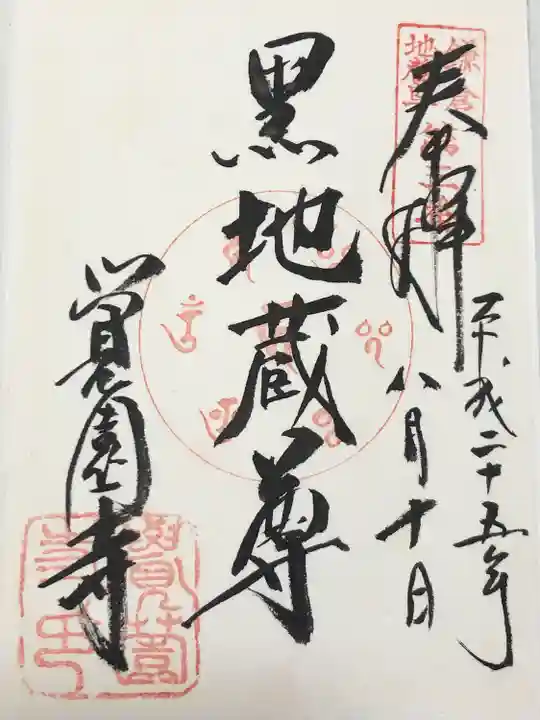 奉拝
平成二十五年
八月十日
黒地蔵尊
覚園寺
鎌倉
地蔵尊 第三番